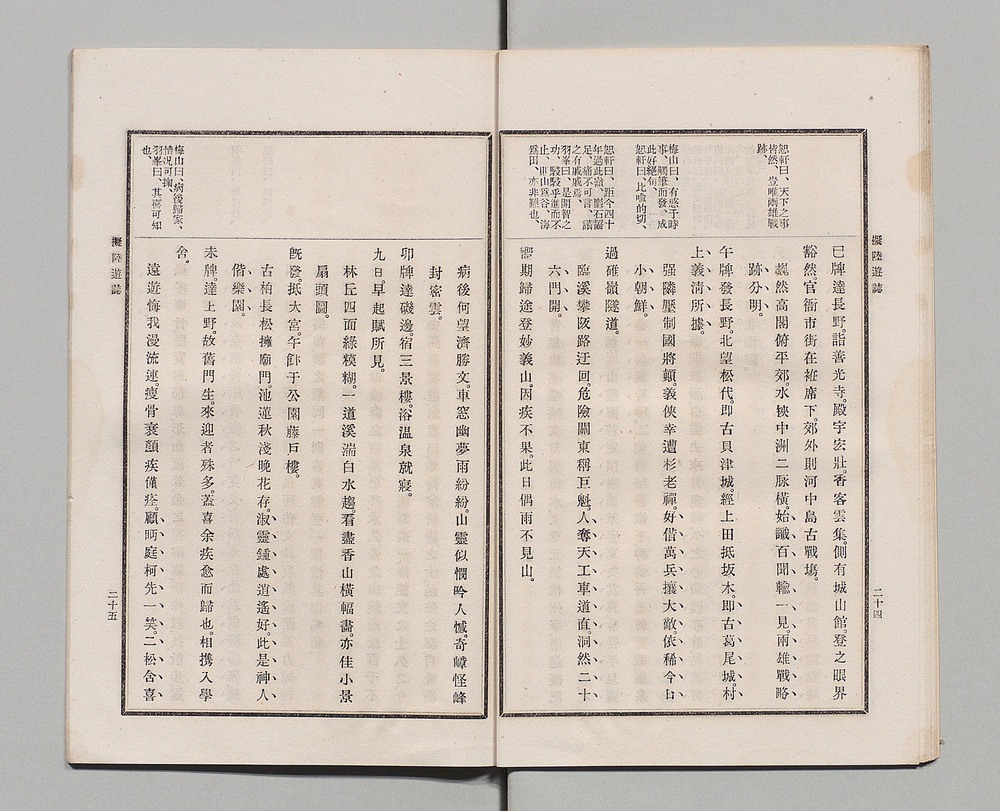 擬陸遊誌
二十四
恕軒曰、天下之事
皆然、豈唯兩雄戰
跡、
梅山曰、有感于時
事、觸筆而發、成
此好絕句、
恕軒曰、比喩的切、
恕軒曰、距今四十
年過此嶺、巖石齧
足、痛不可言、讀
之有戚戚焉、
羽峯曰、是開智之
功、駸駸乎進而不
止、則山爲谷、海
爲田、亦非難也、
巳牌達長野。詣善光寺。殿宇宏壯。香客雲集。側有城山館。登之眼界
豁然。官衙市街在袵席下。郊外則河中島古戰場。
巍然高閣俯平郊。水狹中洲二脉橫。始識百聞輸一見。兩雄戰略
跡分明。
午牌發長野。北望松代。即古貝津城。經上田抵坂木。即古葛尾城。村
上義淸所據。
强隣壓制國將顚。義俠幸遭杉老禪。好借萬兵攘大敵。依稀今日
小朝鮮。
過碓嶺隧道。
臨溪攀阪路迂回。危險關東稱巨魁。人奪天工車道直。洞然二十
六門開。
嚮期歸途登妙義山。因疾不果。此日偶雨不見山。
病後何望濟勝文。車窓幽夢雨紛紛。山靈似憫吟人憾。奇嶂怪峰
封密雲。
卯牌達磯邊。宿三景樓。浴溫泉就寢。
九日早起賦所見。
林丘四面綠糢糊。一道溪湍白水趨。看盡香山橫幅畵。亦佳小景
扇頭圖。
旣發。抵大宮。午飰于公園藤戶樓。
古柏長松擁廟門。池蓮秋淺晚花存。淑靈鍾處逍遙好。此是神人
偕樂園。
未牌。達上野。故舊門生。來迎者殊多。蓋喜余疾愈而歸也。相携入學
舍。
遠遊悔我漫流連。瘦骨衰顏疾僅痊。顧眄庭柯先一笑。二松含喜
梅山曰、病後歸家、
情况可掬、
羽峯曰、其喜可知
也、
擬陸遊誌
二十五